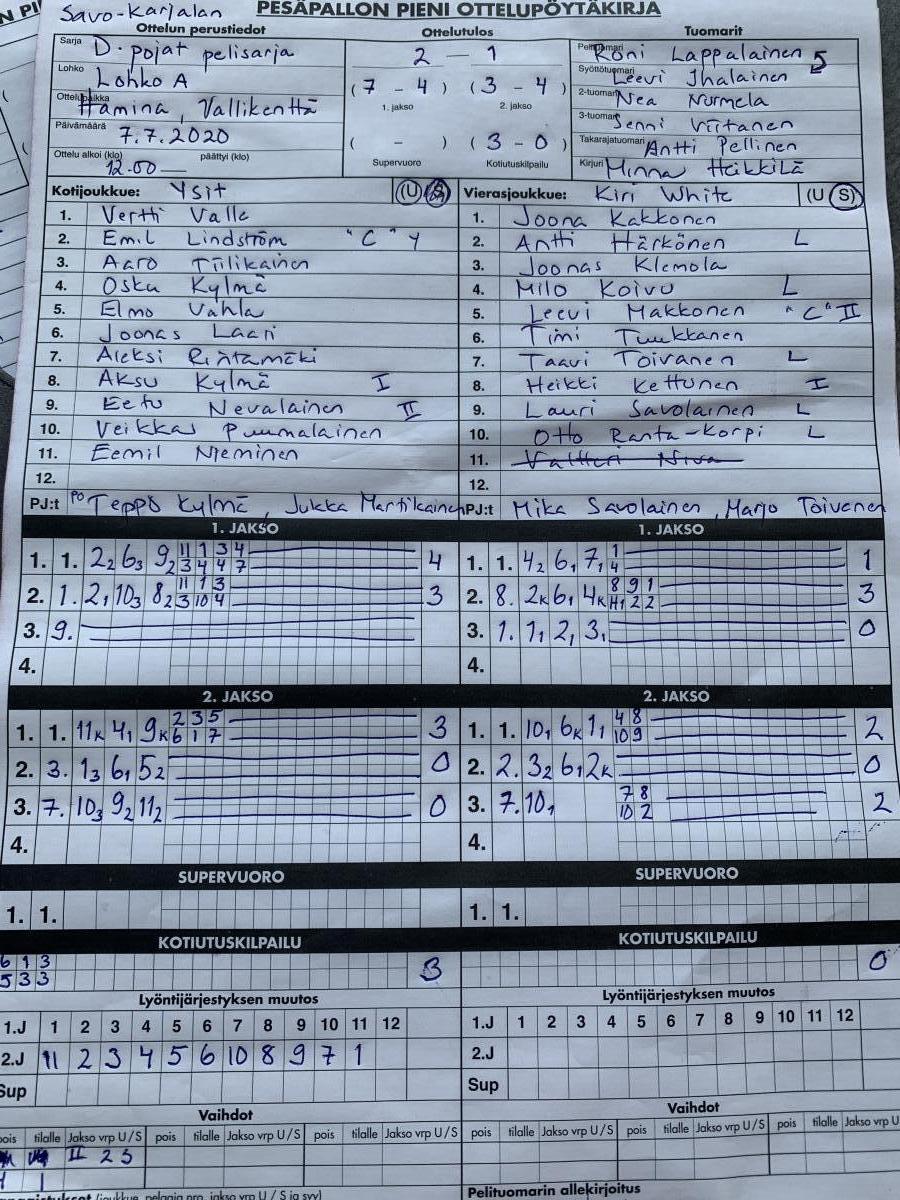 PESÄPALLON PIENI OTTELUPÖYTÄKIRJA
Savo-Karjalan
Ottelun perustiedot
Sarja D-pojat pelisarja
Lohko Lohko A
Ottelupaikka Hamina, Vallikenttä
Päivämäärä 7.7.2020
Ottelu alkoi (klo) päättyi (klo)
12.00 —
Ottelutulos
2 — 1
(7 - 4) (3 - 4)
1. jakso 2. jakso
( - ) (3 - 0)
Supervuoro Kotiutuskilpailu
Tuomarit
Pelituomari Roni Lappalainen 5
Syöttötuomari Leevi Ihalainen
2-tuomari Nea Nurmela
3-tuomari Jenni Viitanen
Takarajatuomari Antti Pellinen
Kirjuri Minna Heikkilä
Kotijoukkue: Ysit (U) (S)
1. Vertti Valle
2. Emil Lindström "C" Y
3. Aaro Tiilikainen
4. Osku Kylmä
5. Elmo Vahla
6. Joonas Laari
7. Aleksi Rintamäki
8. Aksu Kylmä I
9. Eetu Nevalainen II
10. Veikkas Puumalainen
11. Eemil Nieminen
12.
PJ:t PO Teppo Kylmä, Jukka Martikainen
Vierasjoukkue: Kiri White (U (S)
1. Joona Kakkonen
2. Antti Härkönen L
3. Joonas Klemola
4. Milo Koivu L
5. Leevi Makkonen "C" II
6. Timi Tuukkanen
7. Taavi Toivanen L
8. Heikki Kettunen I
9. Lauri Savolainen L
10. Otto Ranta-Korpi L
11. Valtteri Niva
12.
PJ:t Mika Savolainen, Marjo Toivanen
1. JAKSO
1. 1. 2₂ 6₃ 9₂ 11 1 3 4 4
3 4 4 7
2. 1. 2₁ 10₃ 8₂ 11 1 3 3
3 10 4
3. 9.
4.
1. JAKSO
1. 1. 4₂ 6₁ 7₁ 1 1
4
2. 8. 2K 6₁ 4K 8 9 1 3
11 2 2
3. 1. 1₁ 2₁ 3₁ 0
4.
2. JAKSO
1. 1. 11K 4₁ 9K 2 3 5 3
6 1 7
2. 3. 1₃ 6₁ 5₂ 0
3. 7. 10₃ 9₂ 11₂ 0
4.
2. JAKSO
1. 1. 10₁ 6K 1₁ 4 8 2
10 9
2. 2. 3₂ 6₁ 2K 0
3. 7. 10₁ 7 8 2
10 2
4.
SUPERVUORO
1. 1.
SUPERVUORO
1. 1.
KOTIUTUSKILPAILU
6 1 3 3
5 3 3
KOTIUTUSKILPAILU
0
Lyöntijärjestyksen muutos
1.J 1 2 3 4 5 6 7 8 9 10 11 12
2.J 11 2 3 4 5 6 10 8 9 7 1
Sup
Lyöntijärjestyksen muutos
1.J 1 2 3 4 5 6 7 8 9 10 11 12
2.J
Sup
Vaihdot
pois tilalle Jakso vrp U/S pois tilalle Jakso vrp U/S pois tilalle Jakso vrp U/S
II 2 S
Vaihdot
pois tilalle Jakso vrp U/S pois tilalle Jakso vrp U/S pois tilalle Jakso vrp U
(joukkue, pelaaja nro, jakso vrp U / S ja syy)
Pelituomarin allekirjoitus